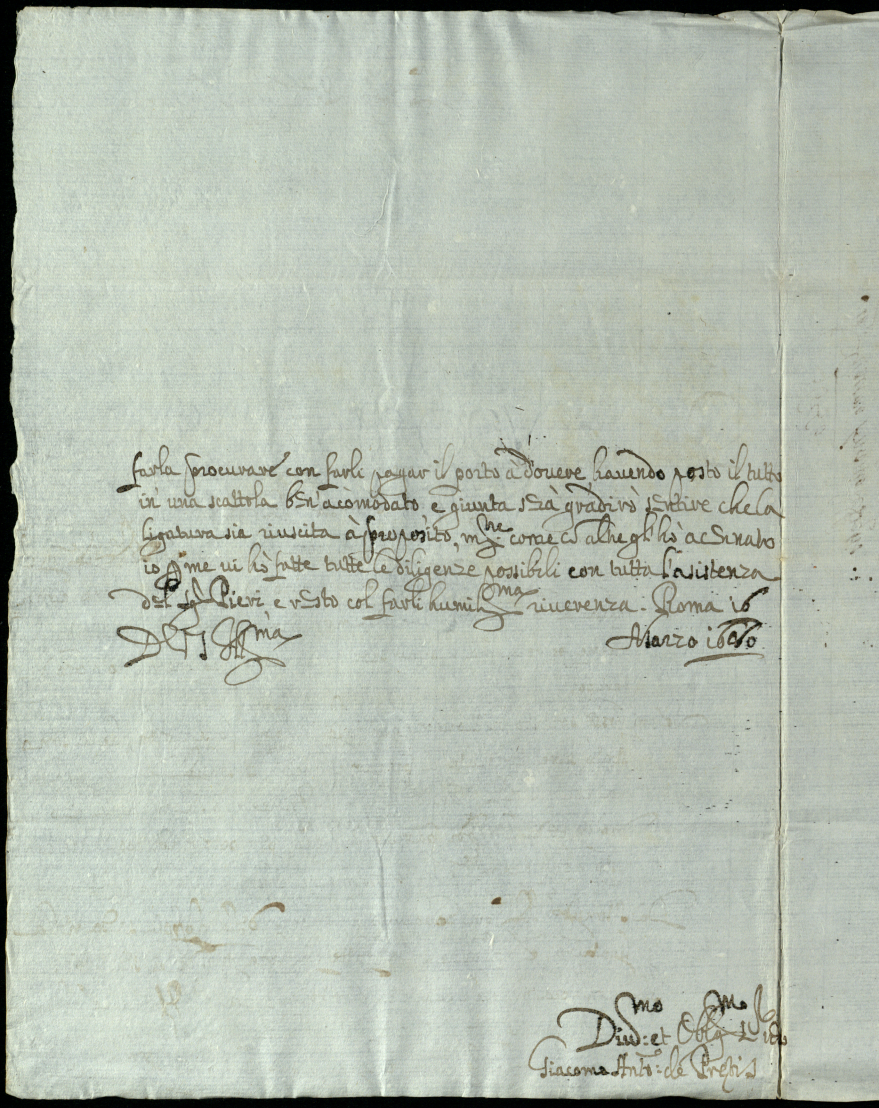 farla procurare con farli pagar il porto à dovere, havendo posto il tutto
in una scattola ben acomodato e giunta serà gradirò sentire che la
ligatura sia riuscita à proposito, come hò acennato
io p me vi hò fatte tutte le diligenze possibili con tutta l'asistenza
del Sig.r Pieri, e resto col farli humil.ma riverenza. Roma 16
Marzo
Di V S Ill.ma
Div.mo et Oblig.mo
Giacomo Ant.o de Pretis